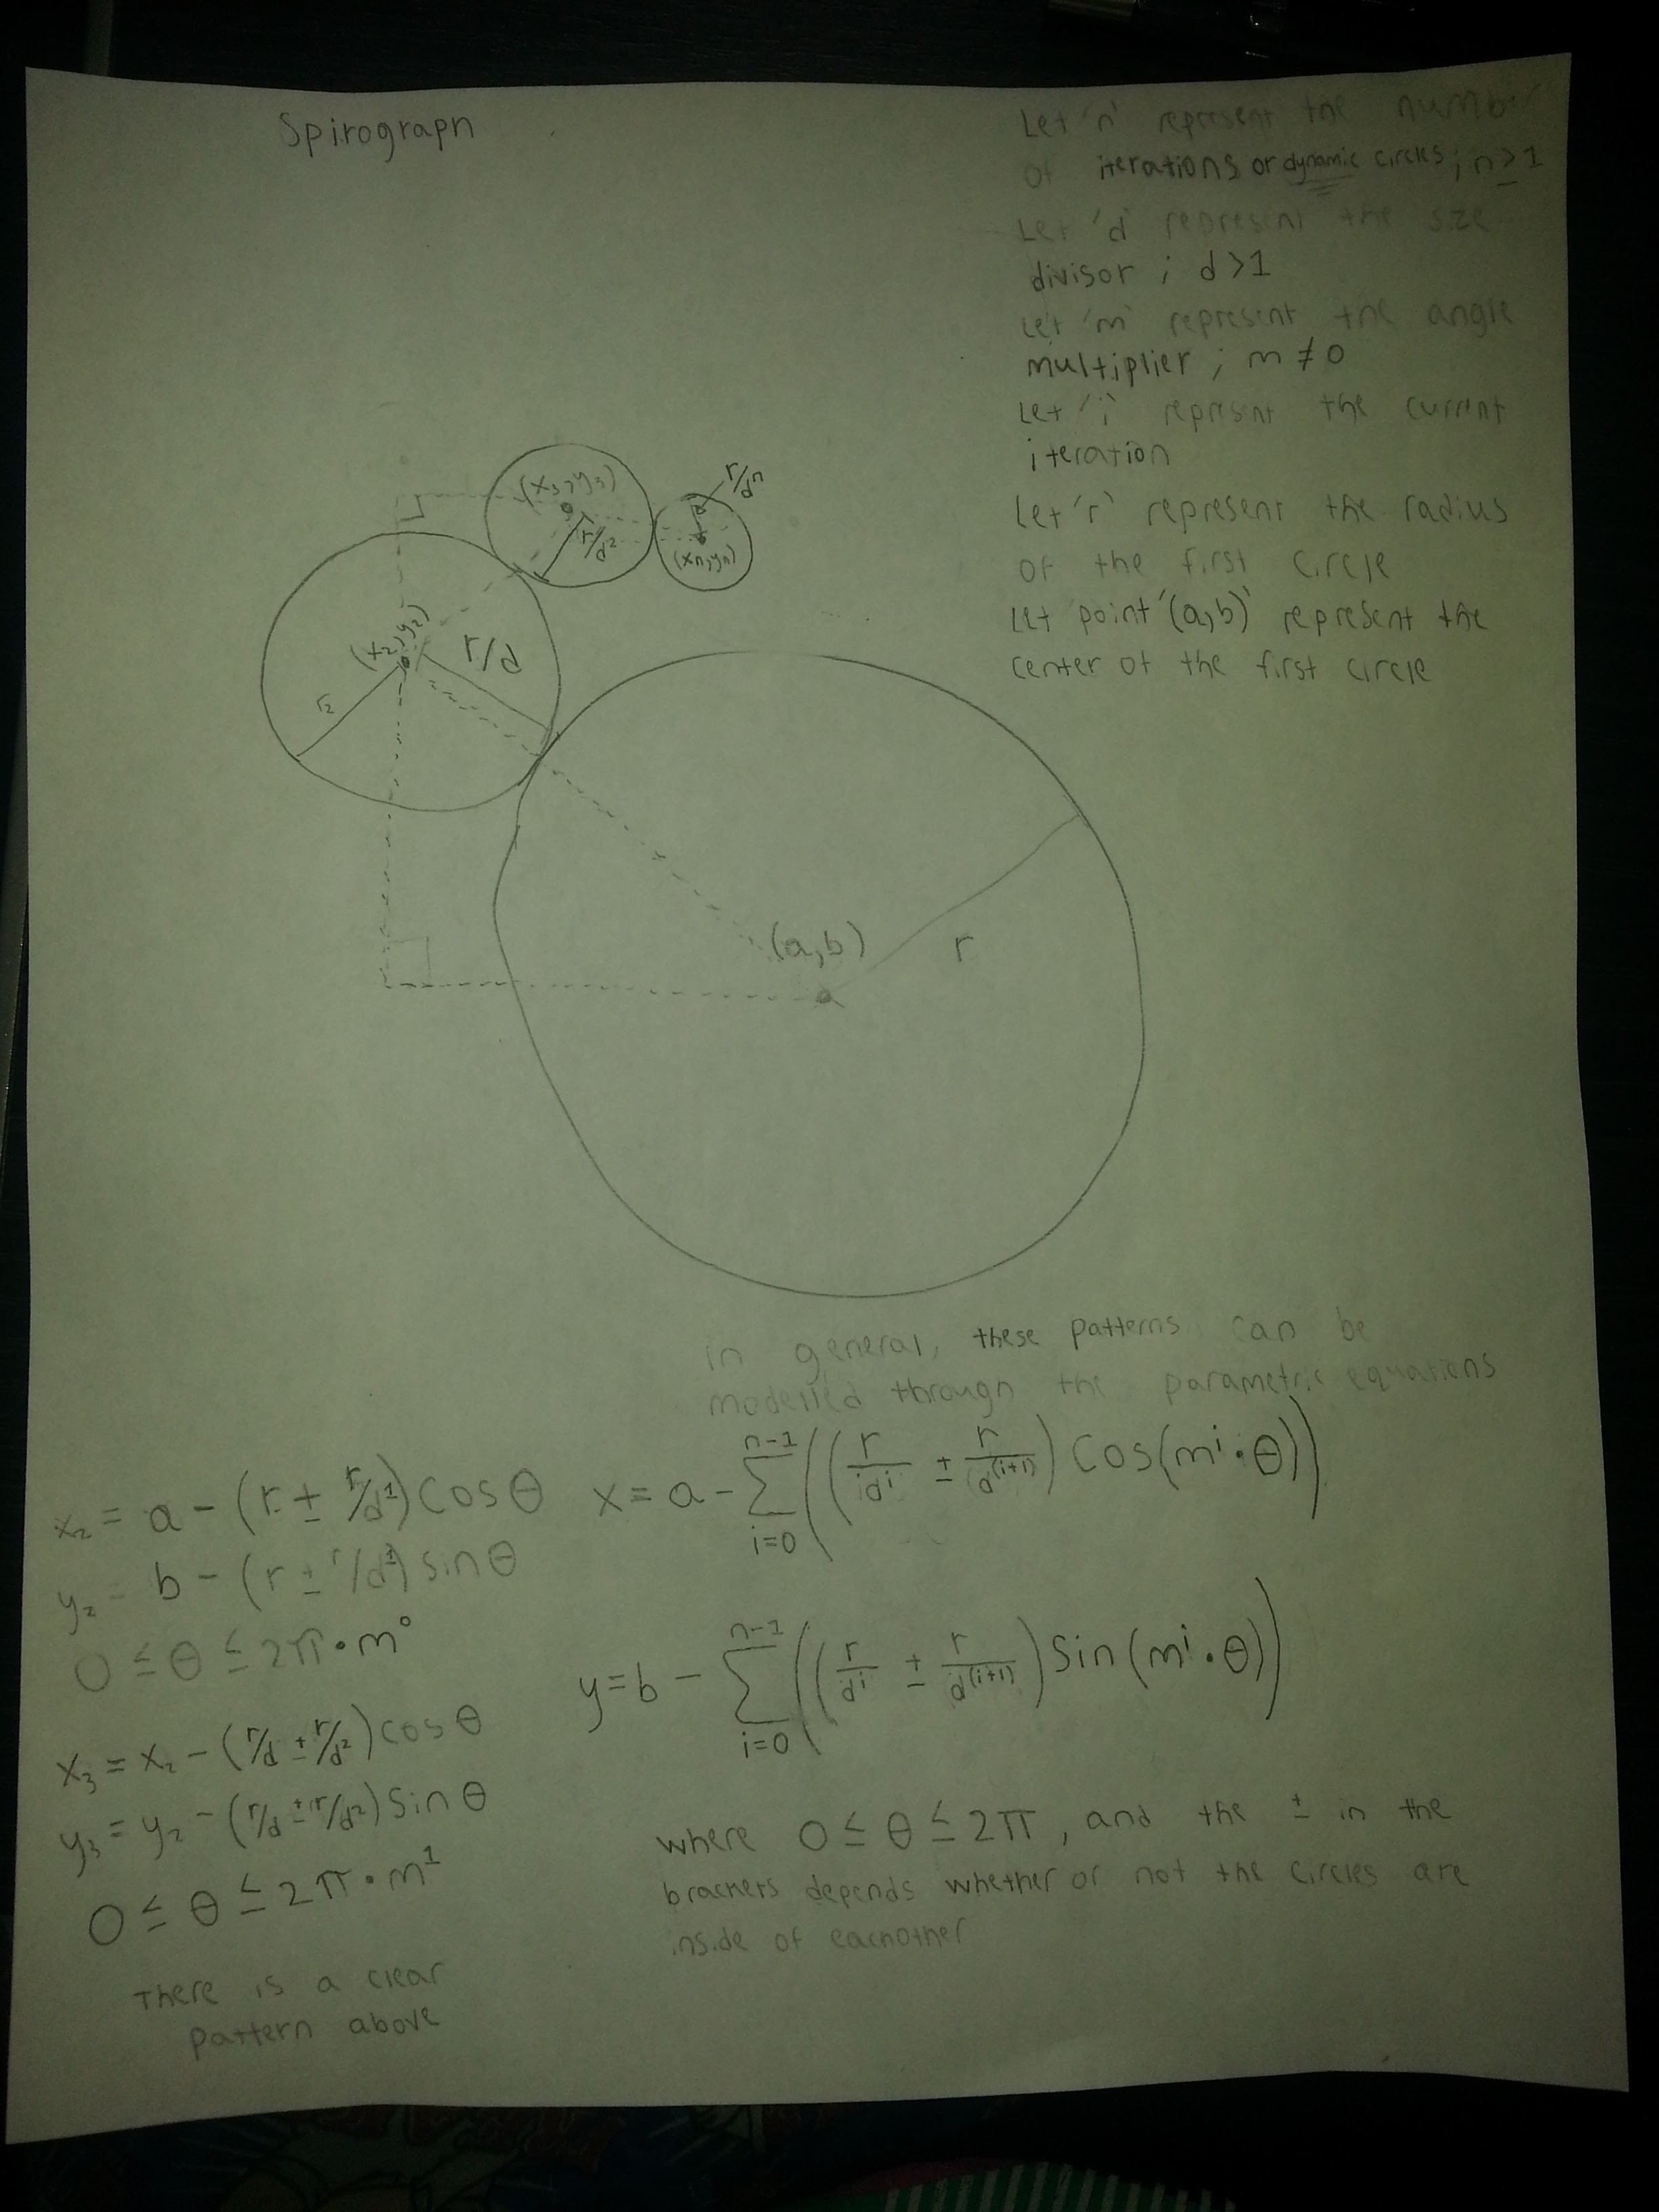 Spirograph
Let 'n' represent the number
of iterations or dynamic circles; n ≥ 1
Let 'd' represent the size
divisor ; d > 1
Let 'm' represent the angle
multiplier ; m ≠ 0
Let 'i' represent the current
iteration
Let 'r' represent the radius
of the first circle
Let point '(a,b)' represent the
center of the first circle
(x₃,y₃)
r/d²
r/dⁿ
(xn,yn)
(x₂,y₂)
r/d
r₂
(a,b)
r
in general, these patterns can be
modelled through the parametric equations
x₂ = a - (r ± r/d¹) cos θ
y₂ = b - (r ± r/d¹) sin θ
0 ≤ θ ≤ 2π • m⁰
x₃ = x₂ - (r/d ± r/d²) cos θ
y₃ = y₂ - (r/d ± r/d²) sin θ
0 ≤ θ ≤ 2π • m¹
There is a clear
pattern above
x = a - ∑_{i=0}^{n-1} ((r/d^i ± r/d^(i+1)) cos(m^i • θ))
y = b - ∑_{i=0}^{n-1} ((r/d^i ± r/d^(i+1)) sin(m^i • θ))
where 0 ≤ θ ≤ 2π, and the ± in the
brackets depends whether or not the circles are
inside of eachother